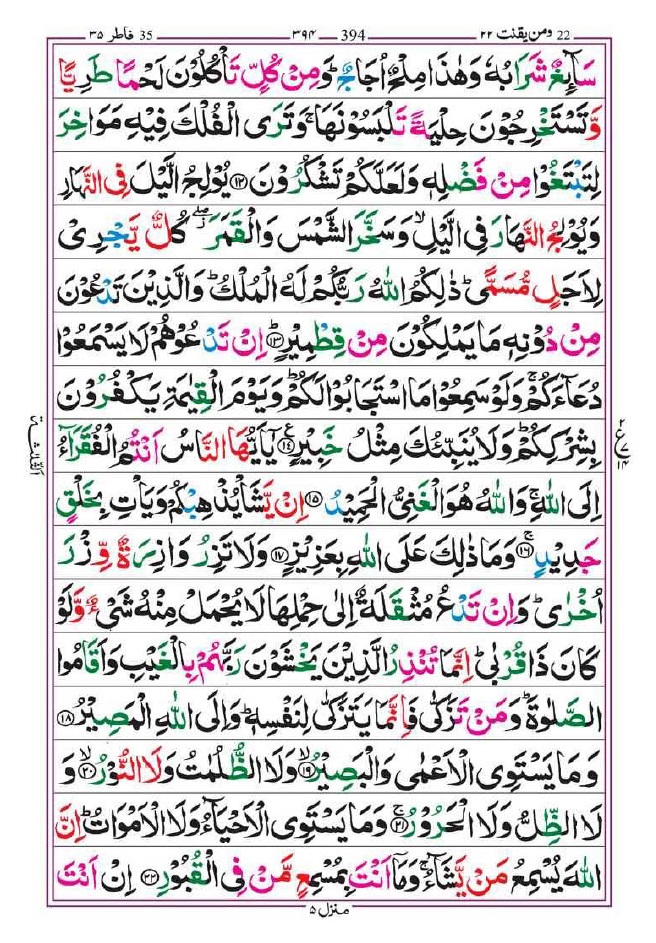 22 ومن یقنت ۲۲
394 — ۳۹۴
35 فاطر ۳۵
سَآئِغٌ شَرَابُهٗ وَهٰذَا مِلْحٌ اُجَاجٌ ؕ وَمِنْ كُلٍّ تَاْكُلُوْنَ لَحْمًا طَرِیًّا
وَّتَسْتَخْرِجُوْنَ حِلْیَةً تَلْبَسُوْنَهَا ۚ وَتَرَی الْفُلْكَ فِیْهِ مَوَاخِرَ
لِتَبْتَغُوْا مِنْ فَضْلِهٖ وَلَعَلَّكُمْ تَشْكُرُوْنَ ﴿۱۲﴾ یُوْلِجُ الَّیْلَ فِی النَّهَارِ
وَیُوْلِجُ النَّهَارَ فِی الَّیْلِ ۙ وَسَخَّرَ الشَّمْسَ وَالْقَمَرَ ۖؗ كُلٌّ یَّجْرِیْ
لِاَجَلٍ مُّسَمًّی ؕ ذٰلِكُمُ اللّٰهُ رَبُّكُمْ لَهُ الْمُلْكُ ؕ وَالَّذِیْنَ تَدْعُوْنَ
مِنْ دُوْنِهٖ مَا یَمْلِكُوْنَ مِنْ قِطْمِیْرٍ ﴿۱۳﴾ؕ اِنْ تَدْعُوْهُمْ لَا یَسْمَعُوْا
دُعَآءَكُمْ ۚ وَلَوْ سَمِعُوْا مَا اسْتَجَابُوْا لَكُمْ ؕ وَیَوْمَ الْقِیٰمَةِ یَكْفُرُوْنَ
بِشِرْكِكُمْ ؕ وَلَا یُنَبِّئُكَ مِثْلُ خَبِیْرٍ ﴿۱۴﴾ یٰۤاَیُّهَا النَّاسُ اَنْتُمُ الْفُقَرَآءُ
اِلَی اللّٰهِ ۚ وَاللّٰهُ هُوَ الْغَنِیُّ الْحَمِیْدُ ﴿۱۵﴾ اِنْ یَّشَاْ یُذْهِبْكُمْ وَیَاْتِ بِخَلْقٍ
جَدِیْدٍ ﴿۱۶﴾ۚ وَمَا ذٰلِكَ عَلَی اللّٰهِ بِعَزِیْزٍ ﴿۱۷﴾ وَلَا تَزِرُ وَازِرَةٌ وِّزْرَ
اُخْرٰی ؕ وَاِنْ تَدْعُ مُثْقَلَةٌ اِلٰی حِمْلِهَا لَا یُحْمَلْ مِنْهُ شَیْءٌ وَّلَوْ
كَانَ ذَا قُرْبٰی ؕ اِنَّمَا تُنْذِرُ الَّذِیْنَ یَخْشَوْنَ رَبَّهُمْ بِالْغَیْبِ وَاَقَامُوا
الصَّلٰوةَ ؕ وَمَنْ تَزَكّٰی فَاِنَّمَا یَتَزَكّٰی لِنَفْسِهٖ ؕ وَاِلَی اللّٰهِ الْمَصِیْرُ ﴿۱۸﴾
وَمَا یَسْتَوِی الْاَعْمٰی وَالْبَصِیْرُ ﴿۱۹﴾ۙ وَلَا الظُّلُمٰتُ وَلَا النُّوْرُ ﴿۲۰﴾ۙ وَ
لَا الظِّلُّ وَلَا الْحَرُوْرُ ﴿۲۱﴾ۚ وَمَا یَسْتَوِی الْاَحْیَآءُ وَلَا الْاَمْوَاتُ ؕ اِنَّ
اللّٰهَ یُسْمِعُ مَنْ یَّشَآءُ ۚ وَمَاۤ اَنْتَ بِمُسْمِعٍ مَّنْ فِی الْقُبُوْرِ ﴿۲۲﴾ اِنْ اَنْتَ
منزل ۵